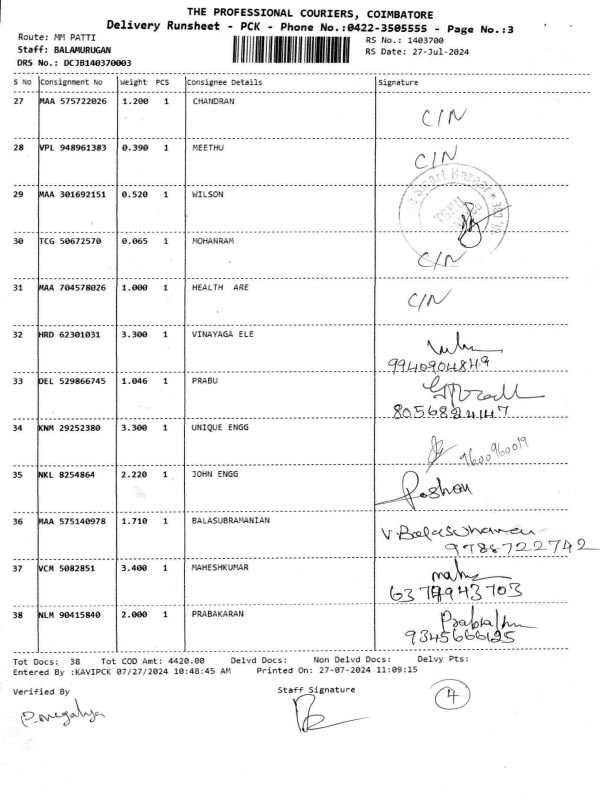 THE PROFESSIONAL COURIERS, COIMBATORE
Delivery Runsheet - PCK - Phone No.:0422-3505555 - Page No.:3
Route: MM PATTI
RS No.: 1403700
Staff: BALAMURUGAN
RS Date: 27-Jul-2024
DRS No.: DCJB140370003
S No Consignment No Weight PCS Consignee Details Signature
27 MAA 575722026 1.200 1 CHANDRAN
C/N
28 VPL 948961383 0.390 1 MEETHU
C/N
29 MAA 301692151 0.520 1 WILSON
Smart Bazaar
30 TCG 50672570 0.065 1 MOHANRAM
C/N
31 MAA 704578026 1.000 1 HEALTH ARE
C/N
32 HRD 62301031 3.300 1 VINAYAGA ELE
9940904849
33 DEL 529866745 1.046 1 PRABU
8056824147
34 KNM 29252380 3.300 1 UNIQUE ENGG
9600960019
35 NKL 8254864 2.220 1 JOHN ENGG
Poshan
36 MAA 575140978 1.710 1 BALASUBRAMANIAN
9788722742
37 VCM 5082851 3.400 1 MAHESHKUMAR
38 NLM 90415840 2.000 1 PRABAKARAN
Tot Docs: 38 Tot COD Amt: 4420.00 Delvd Docs: Non Delvd Docs: Delvy Pts:
Entered By :KAVIPCK 07/27/2024 10:48:45 AM Printed On: 27-07-2024 11:09:15
Verified By Staff Signature
P.Megalya